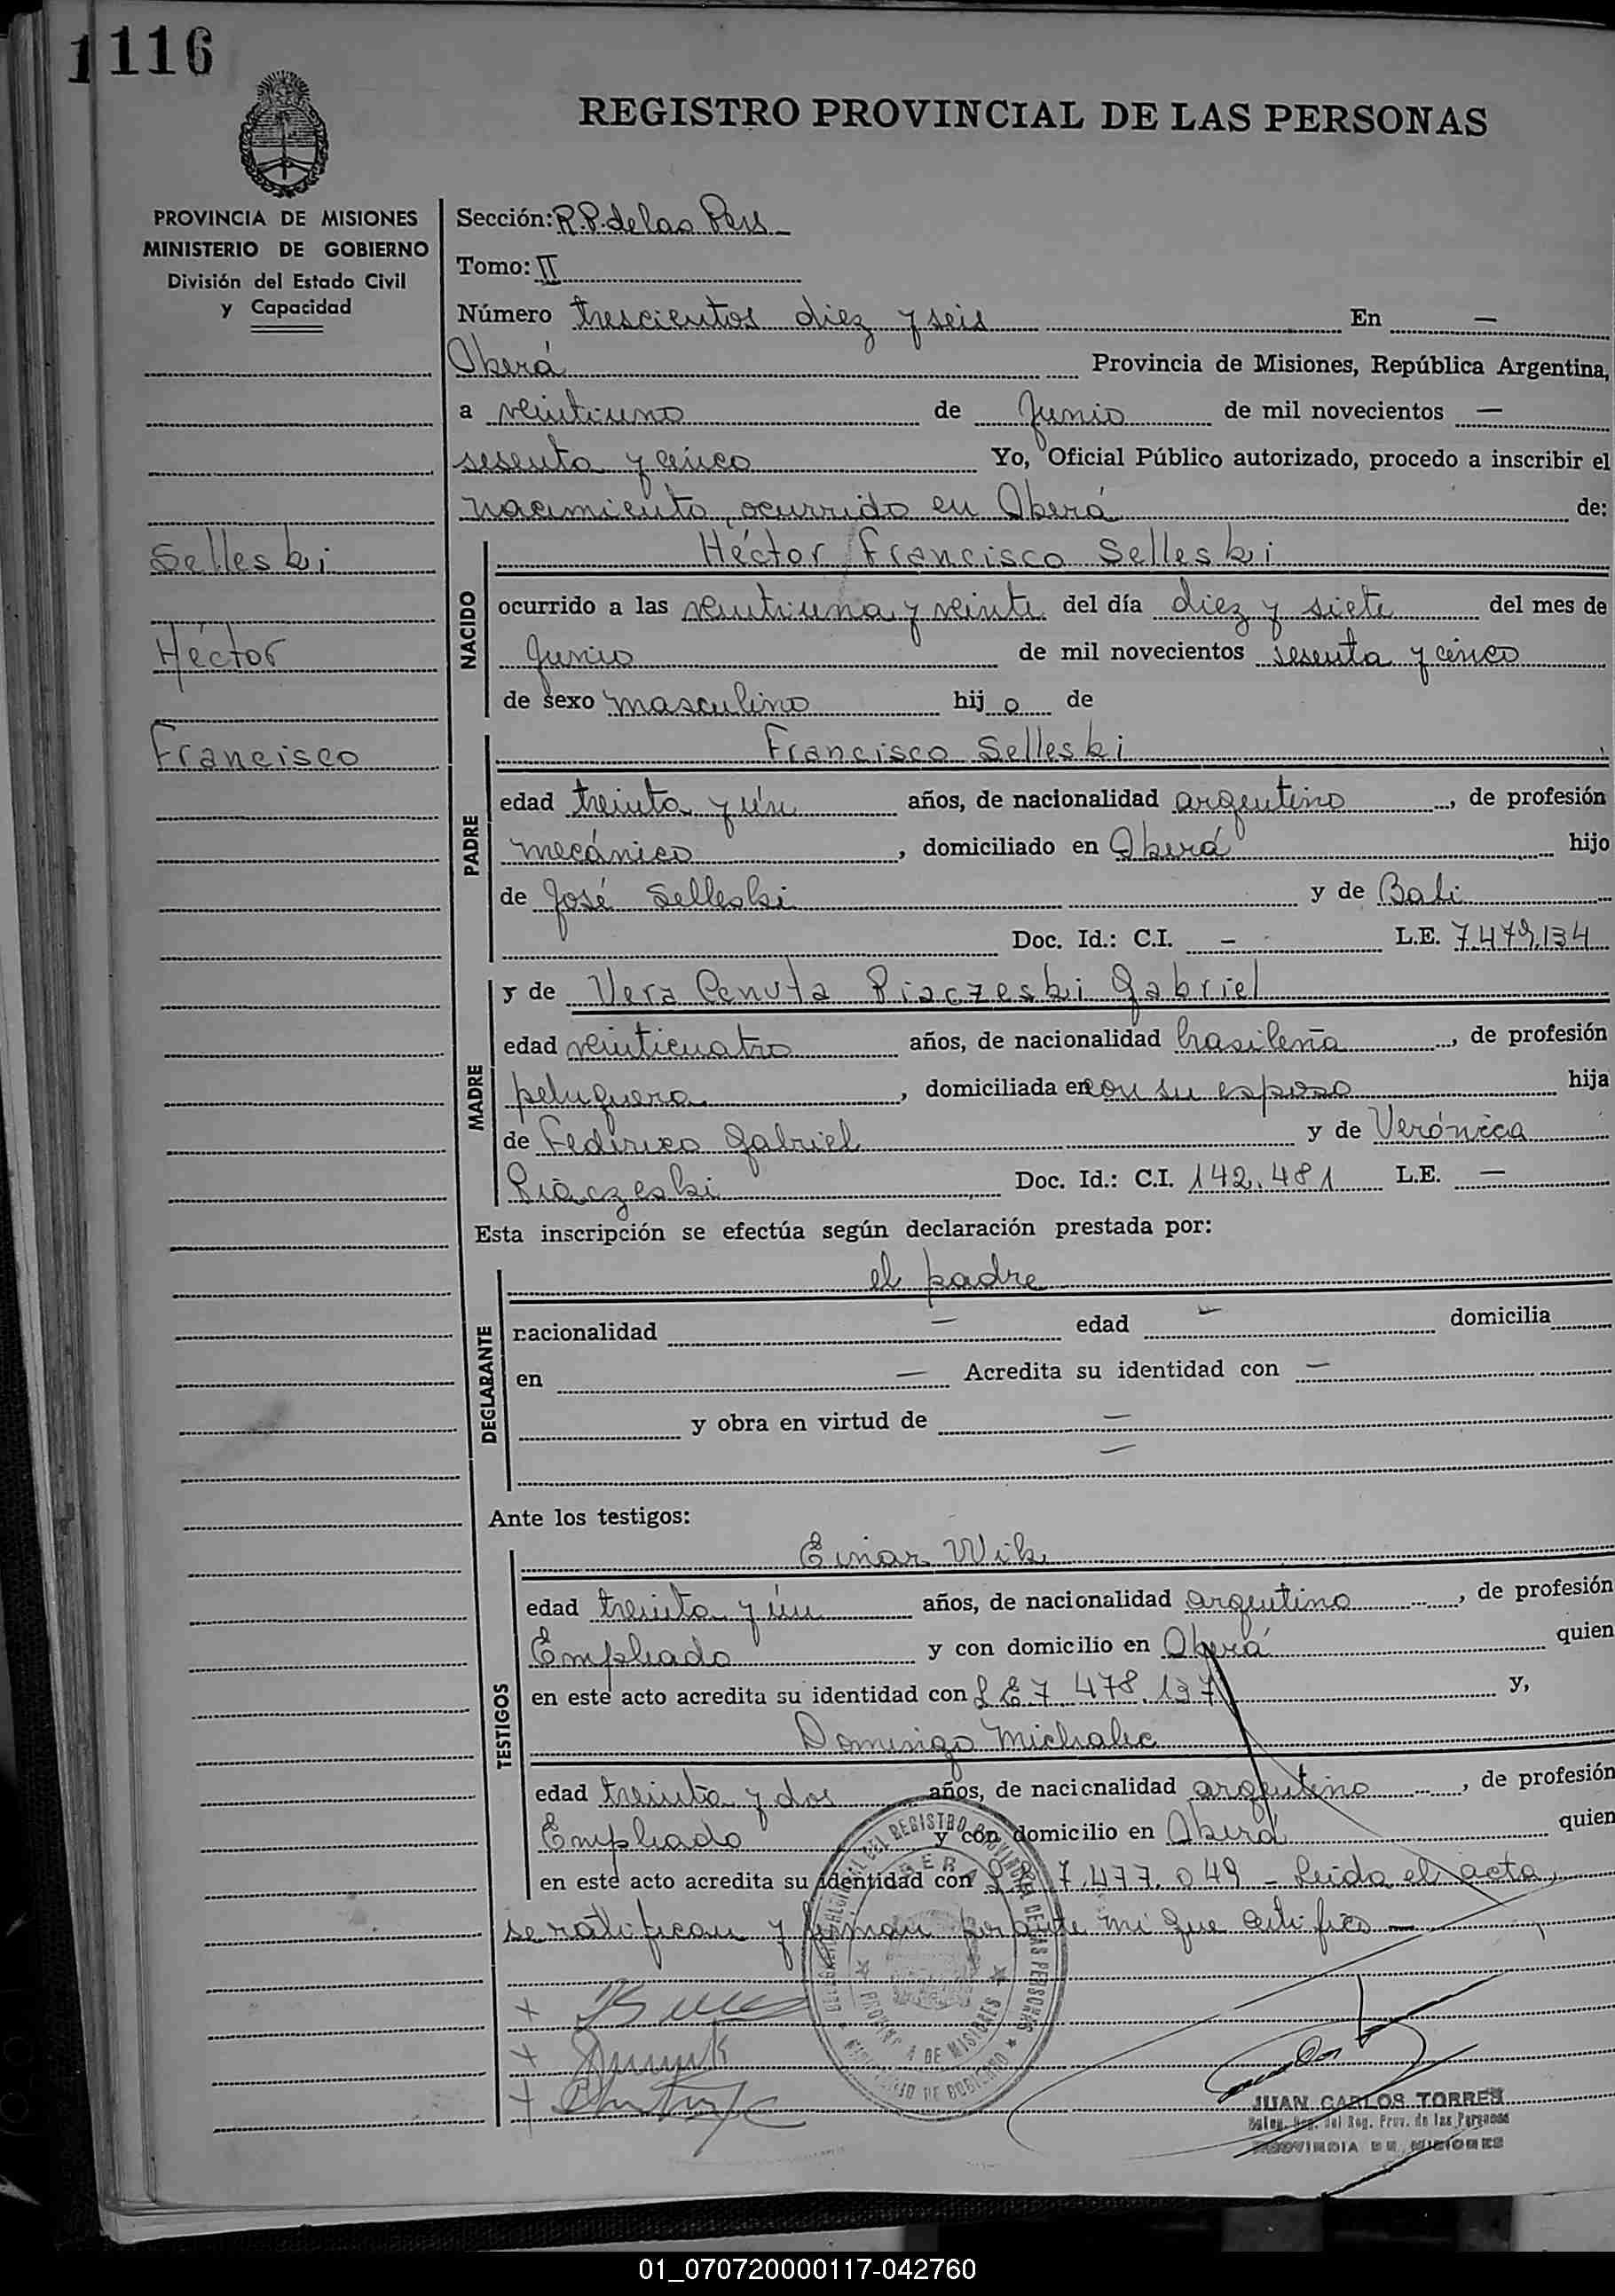 1116
REGISTRO PROVINCIAL DE LAS PERSONAS
PROVINCIA DE MISIONES
MINISTERIO DE GOBIERNO
División del Estado Civil
y Capacidad
Selleski
Héctor
Francisco
Sección: R.P. de las Pers -
Tomo: II
Número trescientos diez y seis En —
Oberá Provincia de Misiones, República Argentina,
a veintiuno de Junio de mil novecientos —
sesenta y cinco Yo, Oficial Público autorizado, procedo a inscribir el
nacimiento, ocurrido en Oberá de:
NACIDO
Héctor Francisco Selleski
ocurrido a las veintiuna y veinte del día diez y siete del mes de
Junio de mil novecientos sesenta y cinco
de sexo masculino hij o de
PADRE
Francisco Selleski
edad treinta y ún años, de nacionalidad argentino, de profesión
mecánico, domiciliado en Oberá hijo
de José Selleski y de Bali
Doc. Id.: C.I. — L.E. 7.479.134
MADRE
y de Vera Canuta Piaczeski Gabriel
edad veinticuatro años, de nacionalidad brasileña, de profesión
peluquera, domiciliada en con su esposo hija
de Federico Gabriel y de Verónica
Piaczeski Doc. Id.: C.I. 142.481 L.E. —
Esta inscripción se efectúa según declaración prestada por:
DECLARANTE
el padre
nacionalidad — edad — domicilia
en — Acredita su identidad con —
y obra en virtud de —
—
Ante los testigos:
TESTIGOS
Einar Wik
edad treinta y ún años, de nacionalidad argentino, de profesión
Empleado y con domicilio en Oberá quien
en este acto acredita su identidad con L E 7.478.137 y,
Domingo Michalec
edad treinta y dos años, de nacionalidad argentino, de profesión
Empleado y con domicilio en Oberá quien
en este acto acredita su identidad con L E 7.477.049 - Leida el acta,
se ratifican y firman por ante mi que certifico —
REGISTRO PROVINCIAL DE LAS PERSONAS
OBERA
PROVINCIA DE MISIONES
MINISTERIO DE GOBIERNO
JUAN CARLOS TORRES
del Reg. Prov. de las Personas
PROVINCIA DE MISIONES
01_070720000117-042760